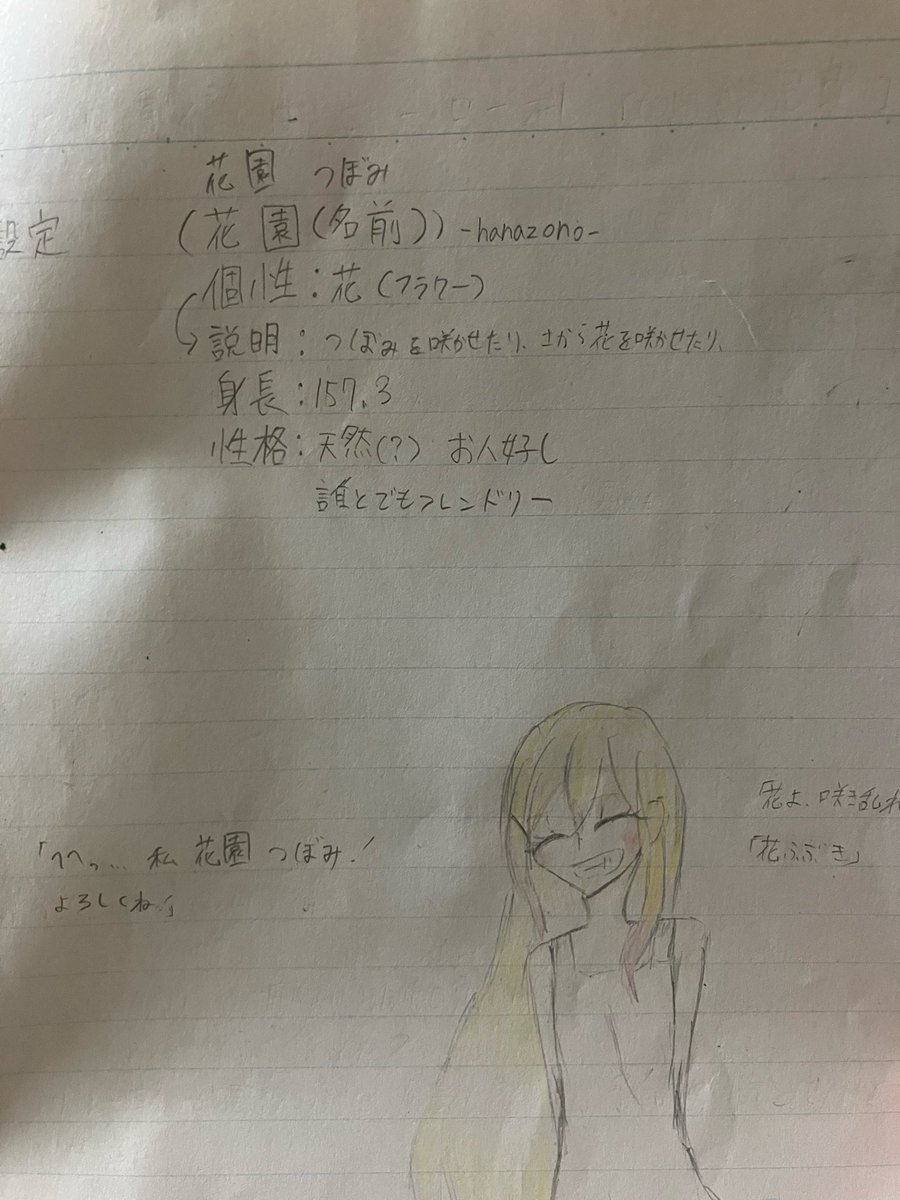 花園 つぼみ
設定 (花園(名前)) -hanazono-
個性:花(フラワー)
説明:つぼみを咲かせたり、さから花を咲かせたり、
身長:157.3
性格:天然(?) お人好し
誰とでもフレンドリー
「花よ、咲き乱れ
「花ふぶき」
「へへっ... 私 花園 つぼみ!
よろしくね!」